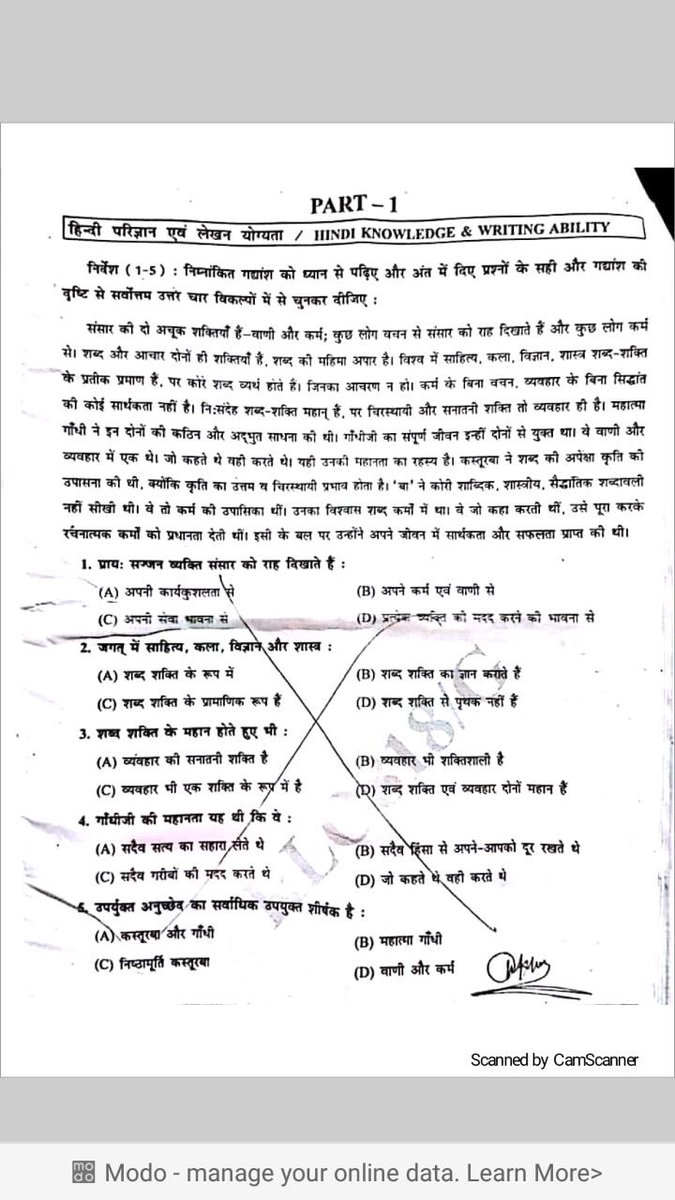 PART – 1
हिन्दी परिज्ञान एवं लेखन योग्यता / HINDI KNOWLEDGE & WRITING ABILITY
निर्देश (1-5) : निम्नांकित गद्यांश को ध्यान से पढ़िए और अंत में दिए प्रश्नों के सही और गद्यांश की
दृष्टि से सर्वोत्तम उत्तर चार विकल्पों में से चुनकर दीजिए :
संसार की दो अचूक शक्तियाँ हैं–वाणी और कर्म; कुछ लोग वचन से संसार को राह दिखाते हैं और कुछ लोग कर्म
से। शब्द और आचार दोनों ही शक्तियाँ हैं, शब्द की महिमा अपार है। विश्व में साहित्य, कला, विज्ञान, शास्त्र शब्द-शक्ति
के प्रतीक प्रमाण हैं, पर कोरे शब्द व्यर्थ होते हैं। जिनका आचरण न हो। कर्म के बिना वचन, व्यवहार के बिना सिद्धांत
की कोई सार्थकता नहीं है। नि:संदेह शब्द-शक्ति महान् हैं, पर चिरस्थायी और सनातनी शक्ति तो व्यवहार ही है। महात्मा
गाँधी ने इन दोनों की कठिन और अद्भुत साधना की थी। गाँधीजी का संपूर्ण जीवन इन्हीं दोनों से युक्त था। वे वाणी और
व्यवहार में एक थे। जो कहते थे वही करते थे। यही उनकी महानता का रहस्य है। कस्तूरबा ने शब्द की अपेक्षा कृति की
उपासना की थी, क्योंकि कृति का उत्तम व चिरस्थायी प्रभाव होता है। 'बा' ने कोरी शाब्दिक, शास्त्रीय, सैद्धांतिक शब्दावली
नहीं सीखी थी। वे तो कर्म की उपासिका थीं। उनका विश्वास शब्द कर्मों में था। वे जो कहा करती थीं, उसे पूरा करके
रचनात्मक कर्मों को प्रधानता देती थीं। इसी के बल पर उन्होंने अपने जीवन में सार्थकता और सफलता प्राप्त की थी।
1. प्राय: सज्जन व्यक्ति संसार को राह दिखाते हैं :
(A) अपनी कार्यकुशलता से (B) अपने कर्म एवं वाणी से
(C) अपनी सेवा भावना से (D) प्रत्येक व्यक्ति की मदद करने की भावना से
2. जगत् में साहित्य, कला, विज्ञान और शास्त्र :
(A) शब्द शक्ति के रूप में (B) शब्द शक्ति का ज्ञान कराते हैं
(C) शब्द शक्ति के प्रामाणिक रूप हैं (D) शब्द शक्ति से पृथक नहीं हैं
3. शब्द शक्ति के महान होते हुए भी :
(A) व्यवहार की सनातनी शक्ति है (B) व्यवहार भी शक्तिशाली है
(C) व्यवहार भी एक शक्ति के रूप में है (D) शब्द शक्ति एवं व्यवहार दोनों महान हैं
4. गाँधीजी की महानता यह थी कि वे :
(A) सदैव सत्य का सहारा लेते थे (B) सदैव हिंसा से अपने-आपको दूर रखते थे
(C) सदैव गरीबों की मदद करते थे (D) जो कहते थे वही करते थे
5. उपर्युक्त अनुच्छेद का सर्वाधिक उपयुक्त शीर्षक है :
(A) कस्तूरबा और गाँधी (B) महात्मा गाँधी
(C) निष्ठामूर्ति कस्तूरबा (D) वाणी और कर्म
Scanned by CamScanner
modo Modo - manage your online data. Learn More>